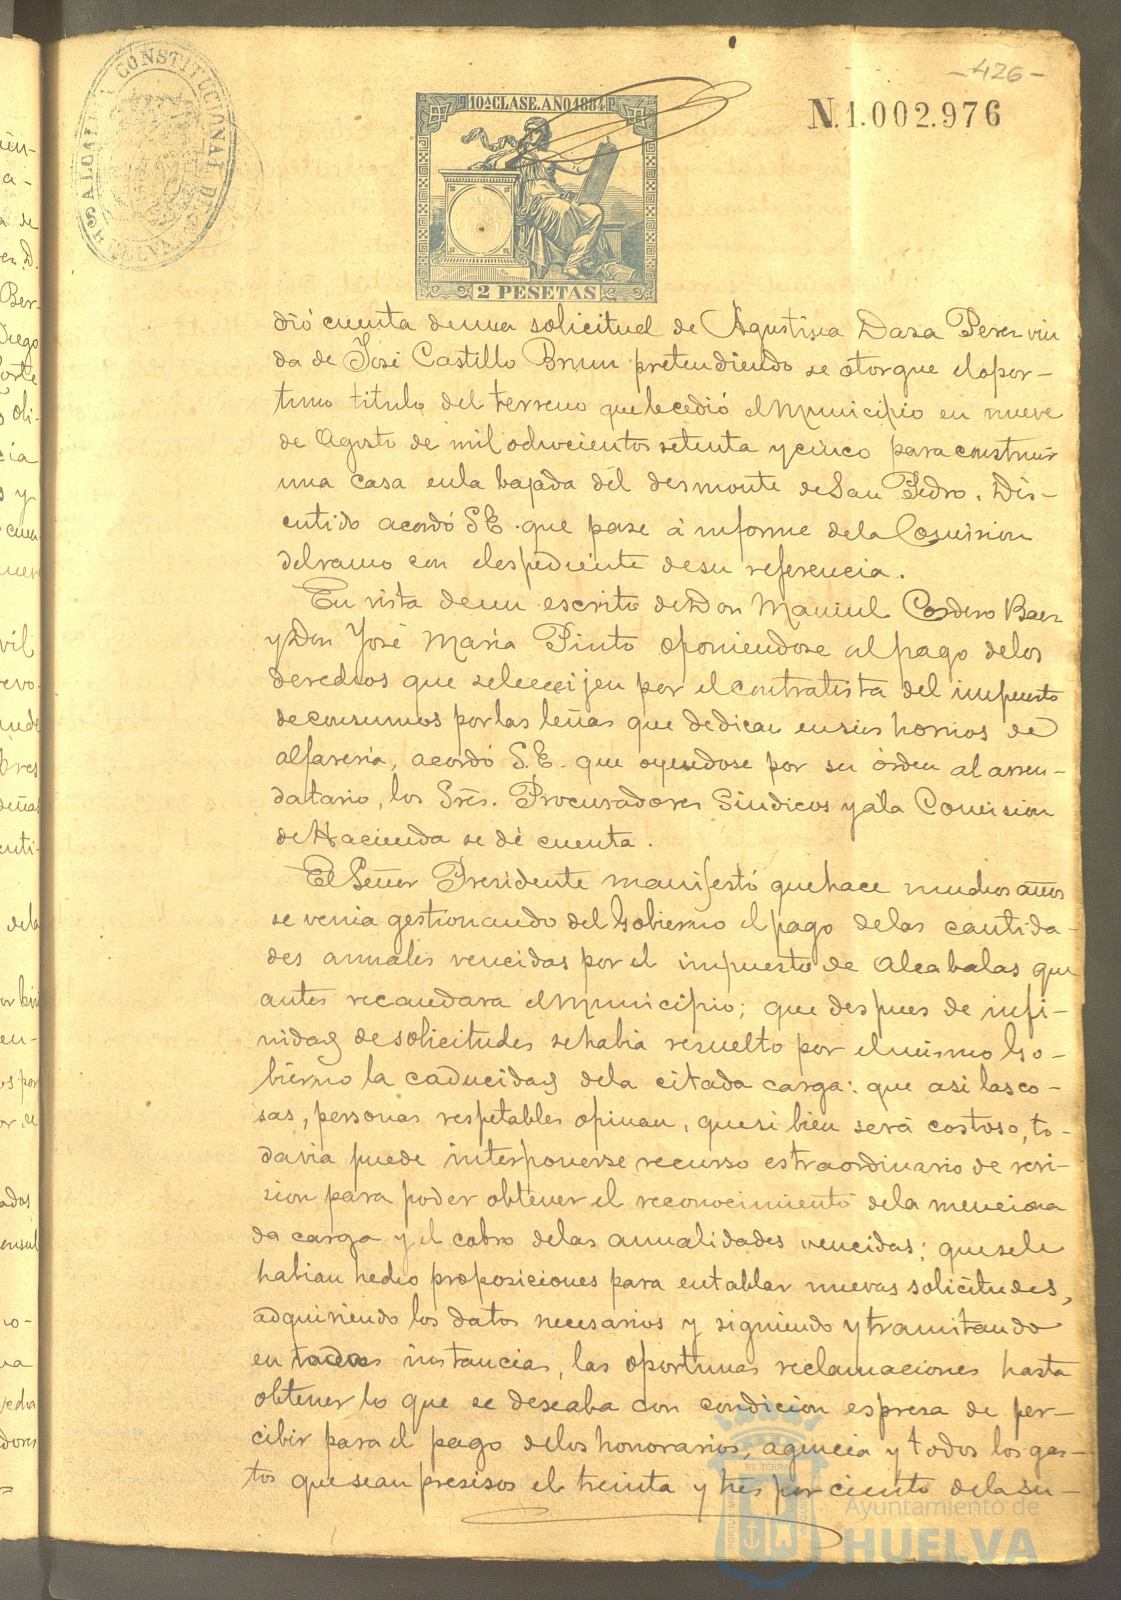 -426-
ALCALDIA CONSTITUCIONAL DE HUELVA
10ª CLASE. AÑO 1884
N.1.002.976
2 PESETAS
dió cuenta de una solicitud de Agustina Daza Perez viu
da de José Castillo Brun pretendiendo se otorgue el opor-
tuno titulo del terreno que le cedió el Municipio en nueve
de Agosto de mil ochocientos setenta y cinco para construir
una casa en la bajada del desmonte de San Pedro. Dis-
cutido acordó S.E. que pase á informe de la Comision
del ramo con el espediente de su referencia.
En vista de un escrito de Don Manuel Cordero Baez
y Don José Maria Pinto oponiendose al pago de los
derechos que se le ecsijen por el contratista del impuesto
de consumos por las leñas que dedican en sus hornos de
alfareria, acordó S.E. que oyendose por su órden al arren-
datario, los Sres. Procuradores Sindicos y á la Comision
de Hacienda se dé cuenta.
El Señor Presidente manifestó que hace muchos años
se venia gestionando del Gobierno el pago de las cantida-
des anuales vencidas por el impuesto de Alcabalas que
antes recaudara el Municipio; que despues de infi-
nidad de solicitudes se habia resuelto por el mismo Go-
bierno la caducidad de la citada carga: que asi las co-
sas, personas respetables opinan, que si bien será costoso, to-
davia puede interponerse recurso estraordinario de revi-
sion para poder obtener el reconocimiento de la menciona
da carga y el cobro de las anualidades vencidas; que se le
habian hecho proposiciones para entablar nuevas solicitudes,
adquiriendo los datos necesarios y siguiendo y tramitando
en todas instancias, las oportunas reclamaciones hasta
obtener lo que se deseaba con condicion espresa de per-
cibir para el pago de los honorarios, agencia y todos los gas-
tos que sean presisos el treinta y tres por ciento de la su-
Ayuntamiento de
HUELVA